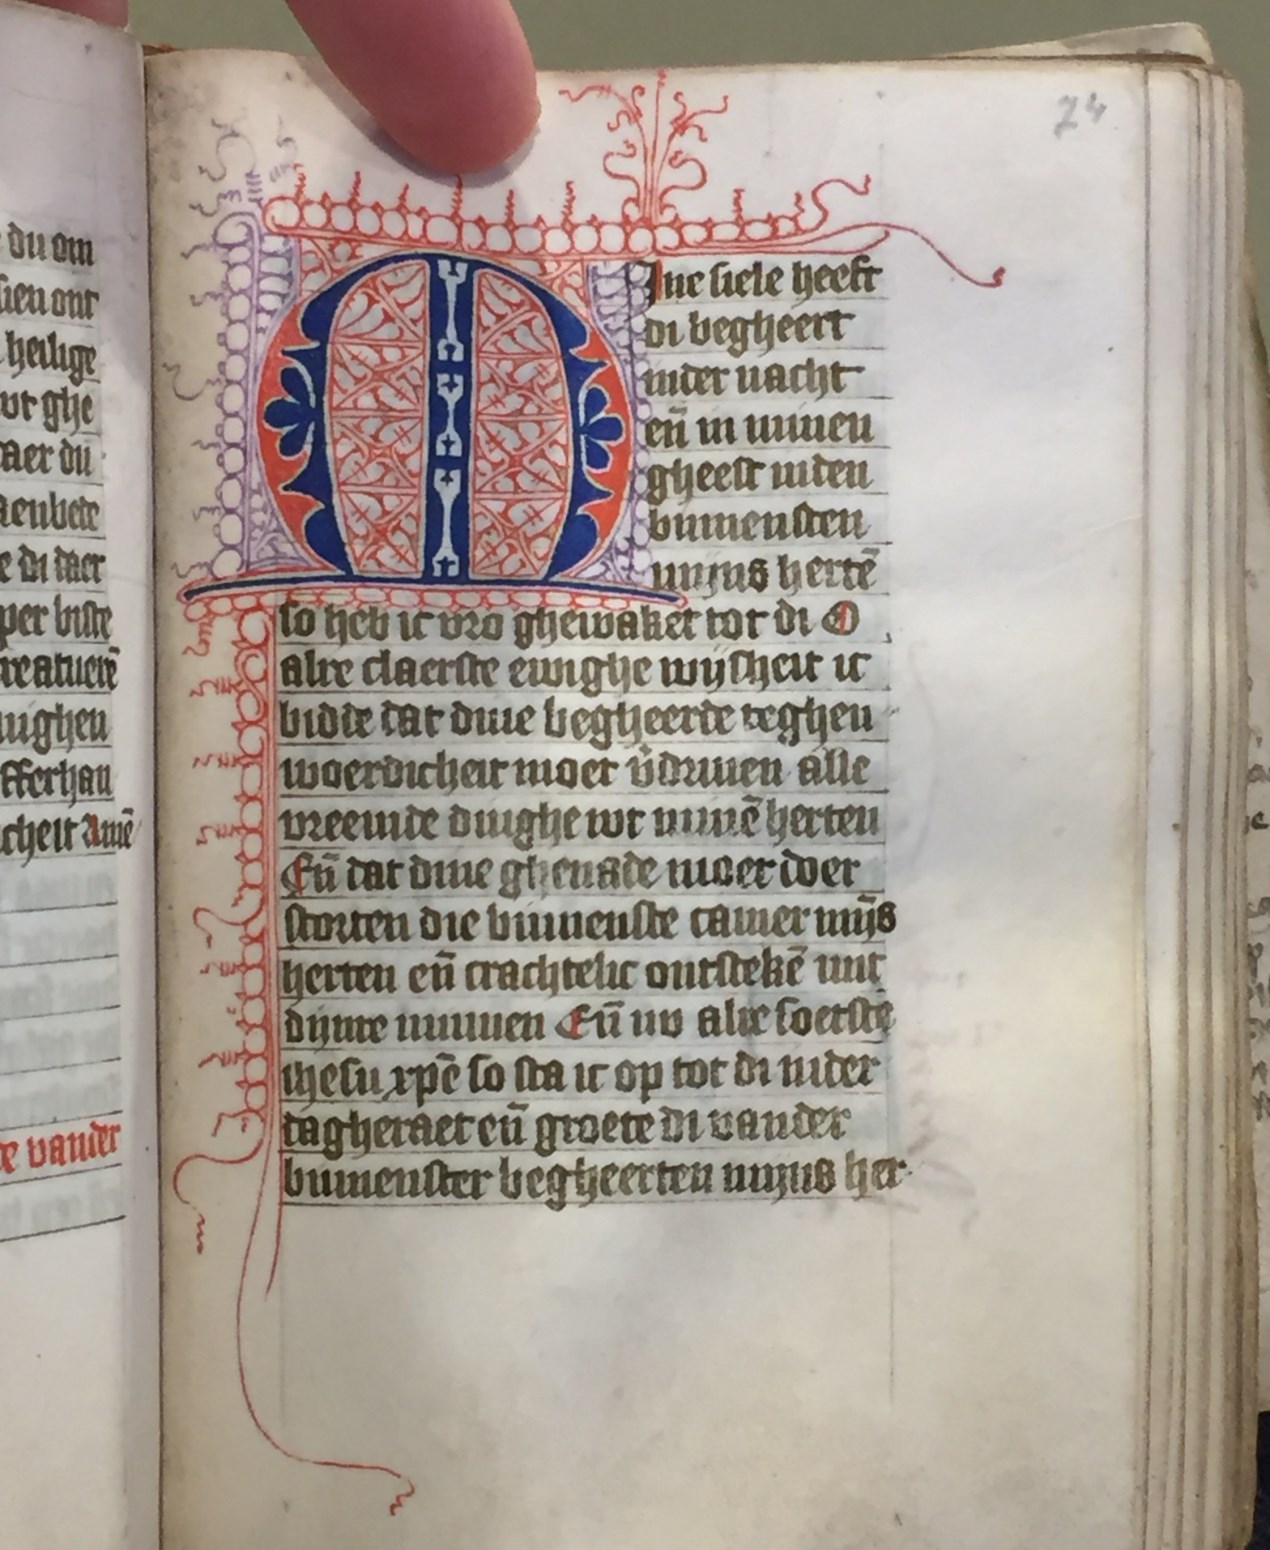 du om
sien ont
heilige
wt ghe
aer du
aenbete
e di daer
per luste
reatuerē
nighen
fferhan
cheit Amē
e vander
24
Mine siele heeft
di begheert
inder nacht
eñ in minen
gheest inden
binnensten
mijns hertē
so heb ic vro ghewaket tot di O
alre claerste ewighe wijsheit ic
bidde dat dine begheerde teghen
woerdicheit moet v̄driuen alle
vreemde dinghe wt minē herten
Eñ dat dine ghenade moet doer
storten die binnenste camer mījs
herten eñ crachtelic ontstekē mit
dijnre minnen Eñ nv alre soetste
ihesu xpē so sta ic op tot di inder
dagheraet eñ groete di vander
binnenster begheerten mijns her